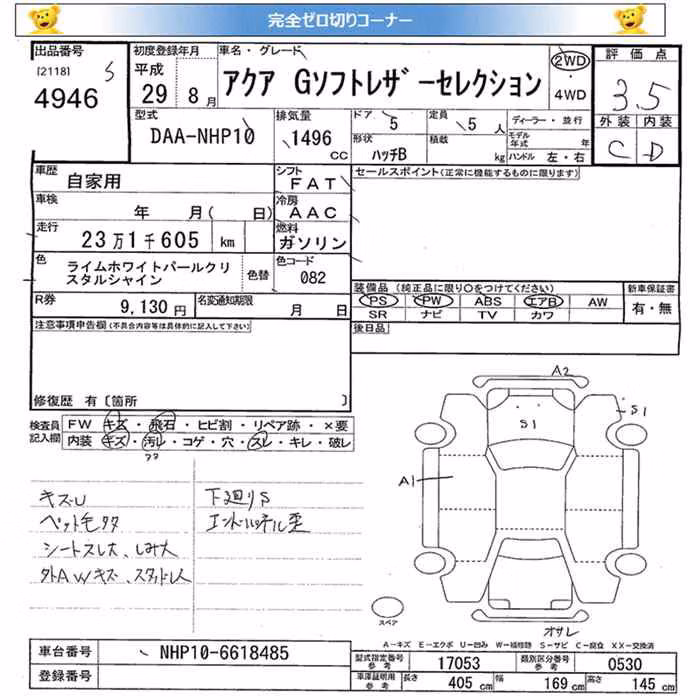 完全ゼロ切りコーナー
出品番号
[2118]
S
4946
初度登録年月
平成
29 8月
車名・グレード
アクア Gソフトレザーセレクション
2WD
・
4WD
評価点
3.5
外装 内装
C D
型式
DAA-NHP10
排気量
1496
CC
ドア
5
定員
5人
形状
ハッチB
積載
kg
ディーラー・並行
モデル年式 年
ハンドル 左・右
車歴
自家用
シフト
FAT
セールスポイント(正常に機能するものに限ります)
車検
年 月( 日)
冷房
AAC
走行
23万1千605 km
燃料
ガソリン
色
ライムホワイトパールクリ
スタルシャイン
色替
色コード
082
装備品(純正品に限り〇をつけてください)
PS PW ABS エアB AW
SR ナビ TV カワ
新車保証書
有・無
R券
9,130円
名変通知期限
月 日
後日品
注意事項申告欄(不具合内容等は具体的に記入して下さい)
修復歴 有〔箇所 〕
検査員
記入欄
FW キズ・飛石・ヒビ割・リペア跡・×要
内装 キズ・汚レ・コゲ・穴・スレ・キレ・破レ
キズU
ペット毛タタ
シートスレ大、しみ大
外AWキズ、スタッドレス
下廻りS
A2
S1
S1
A1
スペア
オサレ
A-キズ E-エクボ U-凹み W-補修跡 S-サビ C-腐食 XX-交換済
車台番号
NHP10-6618485
登録番号
型式指定番号
参考
17053
類別区分番号
参考
0530
車庫証明用
参考
長さ
405 cm
幅
169 cm
高さ
145 cm